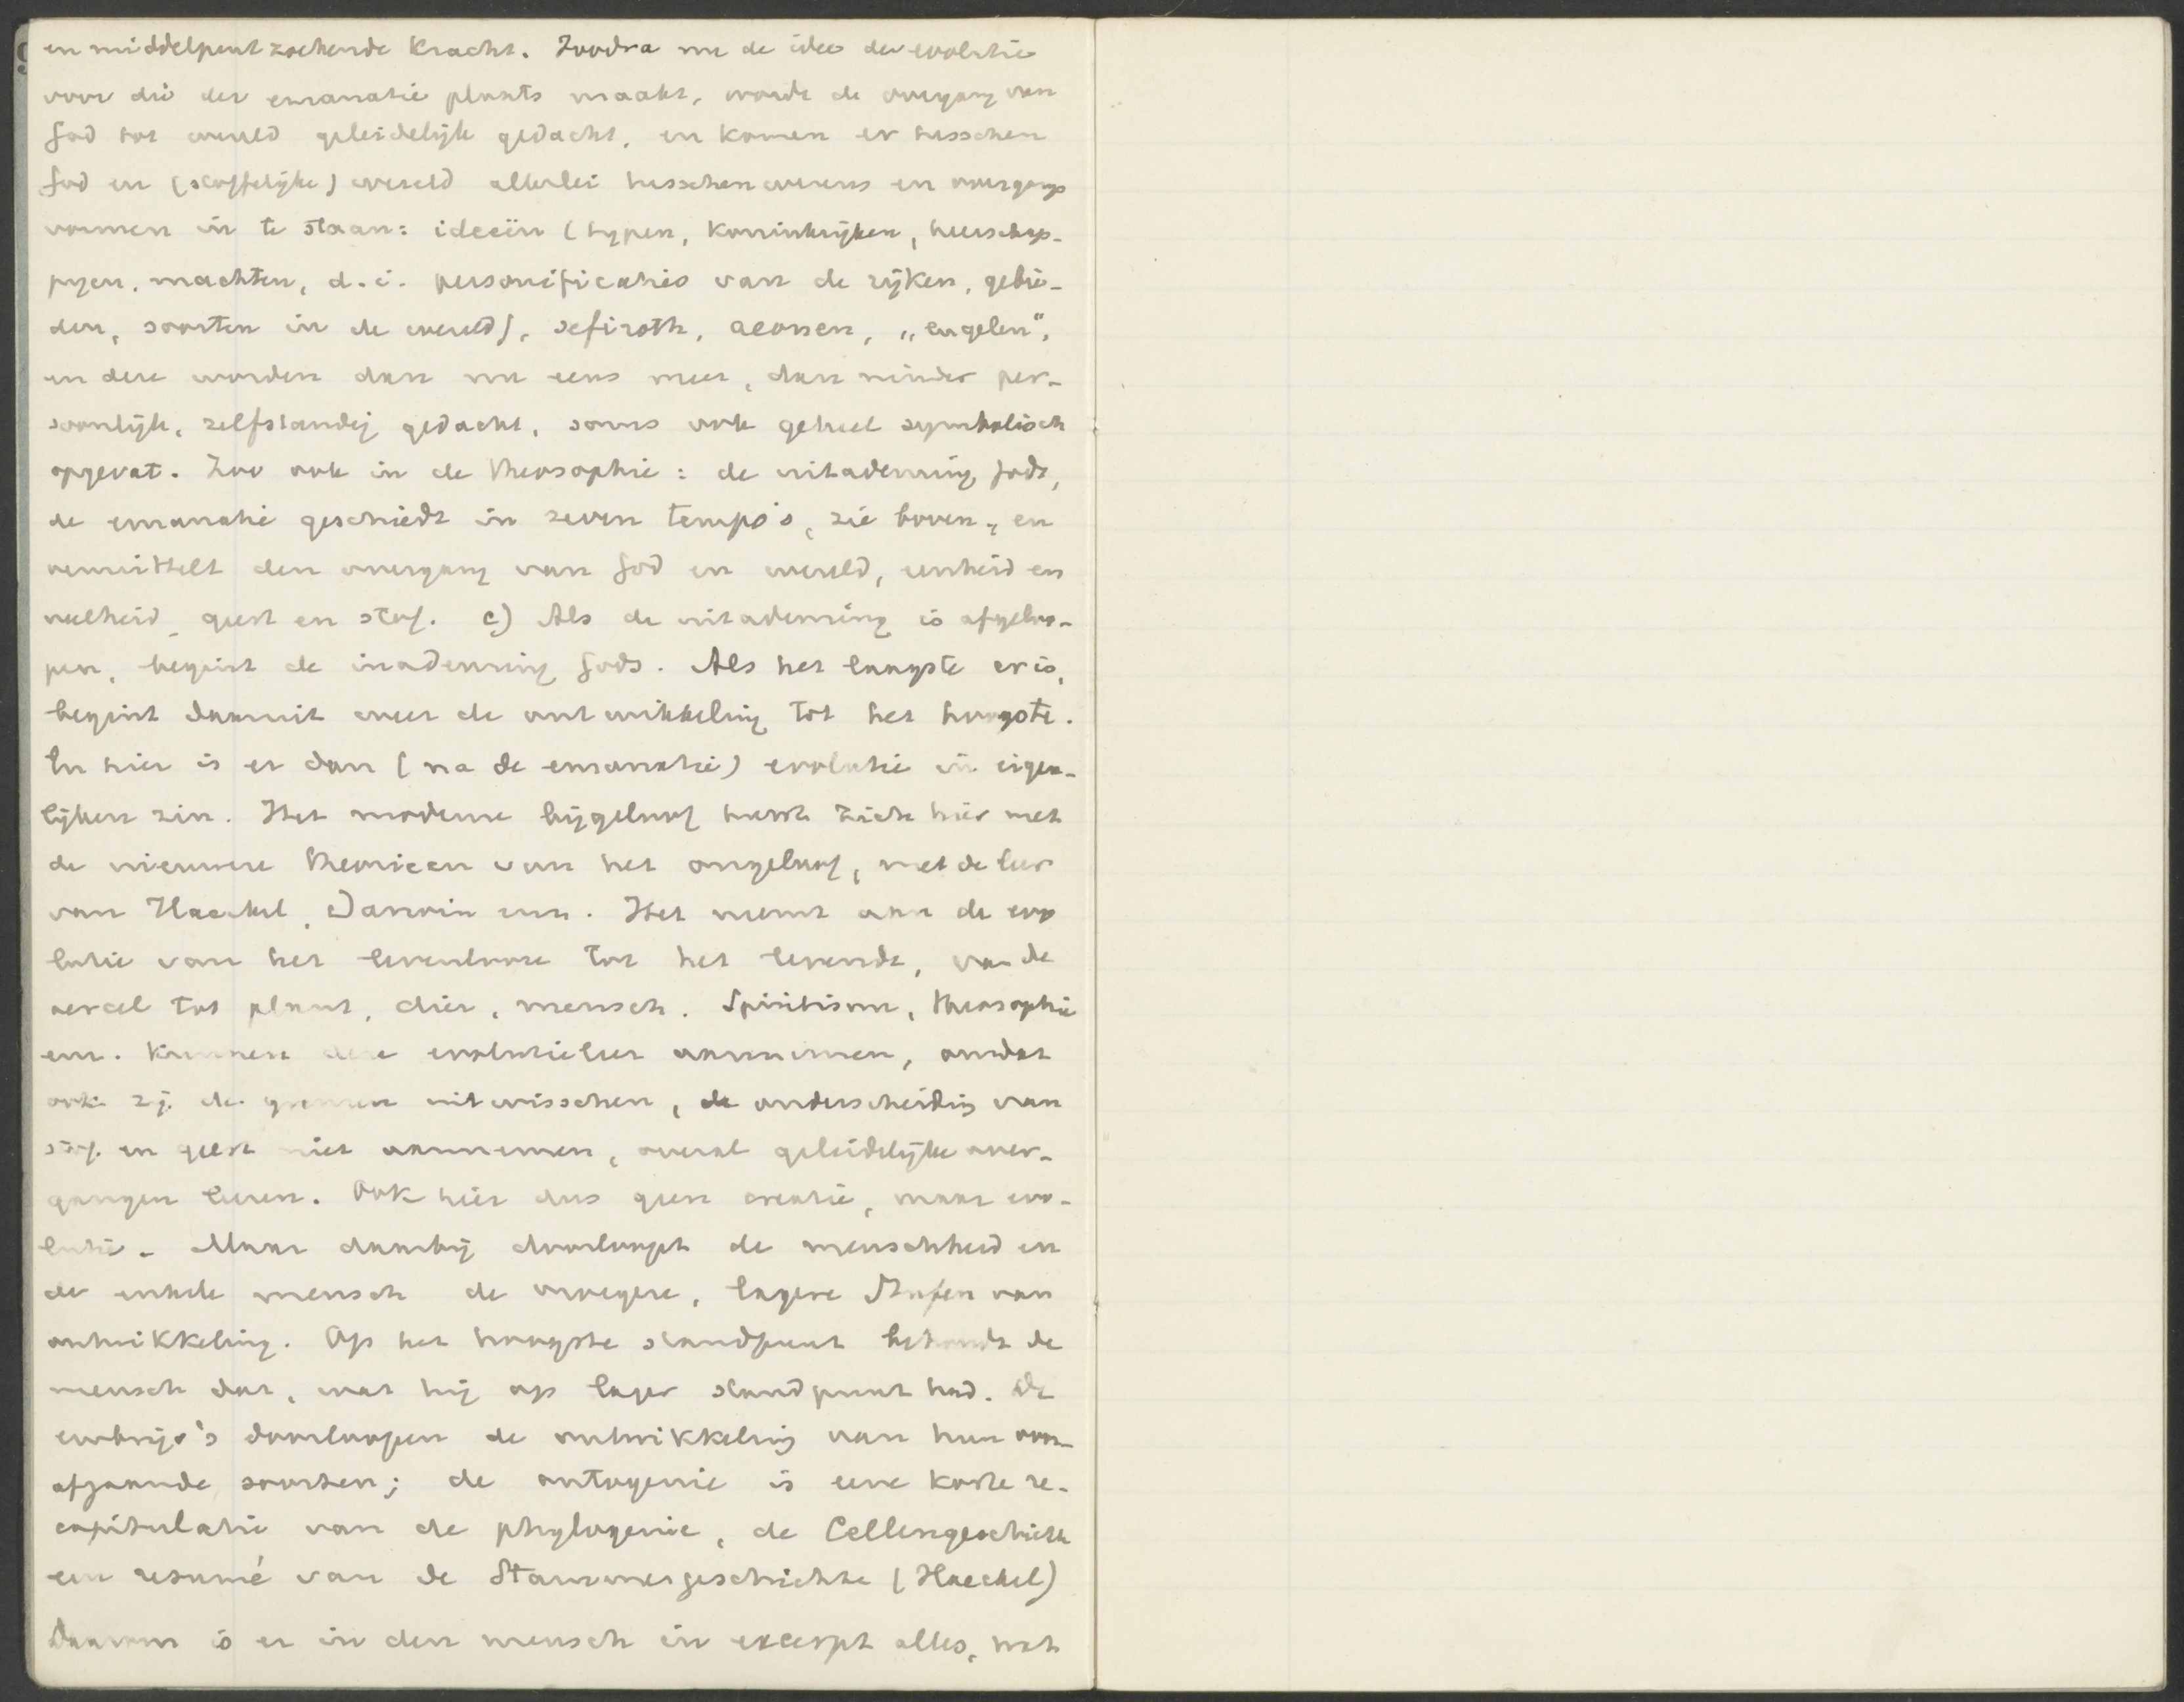 en middelpunt zoekende kracht. Zoodra nu de idee der evolutie
voor die der emanatie plaats maakt, wordt de overgang van
God tot wereld geleidelijk gedacht, en komen er tusschen
God en (stoffelijke) wereld allerlei tusschenwezens en overgangs
vormen in te staan: ideeën (typen, koninkrijken, heerschap-
pijen, machten, d.i. personificaties van de rijken, gebie-
den, soorten in de wereld), sefiroth, aeonen, „engelen",
en deze worden dan nu eens meer, dan minder per-
soonlijk, zelfstandig gedacht, soms ook geheel symbolisch
opgevat. Zoo ook in de theosophie: de uitademing Gods,
de emanatie geschiedt in zeven tempo's, zie boven, en
vermittelt den overgang van God en wereld, eenheid en
veelheid, geest en stof. c) Als de uitademing is afgeloo-
pen, begint de inademing Gods. Als het laagste er is,
begint daarmit weer de ontwikkeling tot het hoogste.
En hier is er dan (na de emanatie) evolutie in eigen-
lijken zin. Het moderne bijgeloof huwt zich hier met
de nieuwere theorieen van het ongeloof, met de leer
van Haeckel, Darwin enz. Het neemt aan de evo
lutie van het levenlooze tot het levende, van de
oercel tot plant, dier, mensch. Spiritisme, theosophie
enz. kunnen deze evolutieleer aannemen, omdat
ook zij de grenzen uitwisschen, de onderscheiding van
stof en geest niet aannemen, overal geleidelijke over-
gangen leeren. Ook hier dus geen creatie, maar evo-
lutie. Maar daarbij doorloopt de menschheid en
de enkele mensch de vroegere, lagere Stufen van
ontwikkeling. Op het hoogste standpunt behoudt de
mensch dat, wat hij op lager standpunt had. De
embryo's doorloopen de ontwikkeling van hun voor-
afgaande soorten; de ontogenie is eene korte re-
capitulatie van de phylogenie, de Cellengeschichte
een resumé van de Stammesgeschichte (Haeckel)
Daarom is er in den mensch in excerpt alles, wat